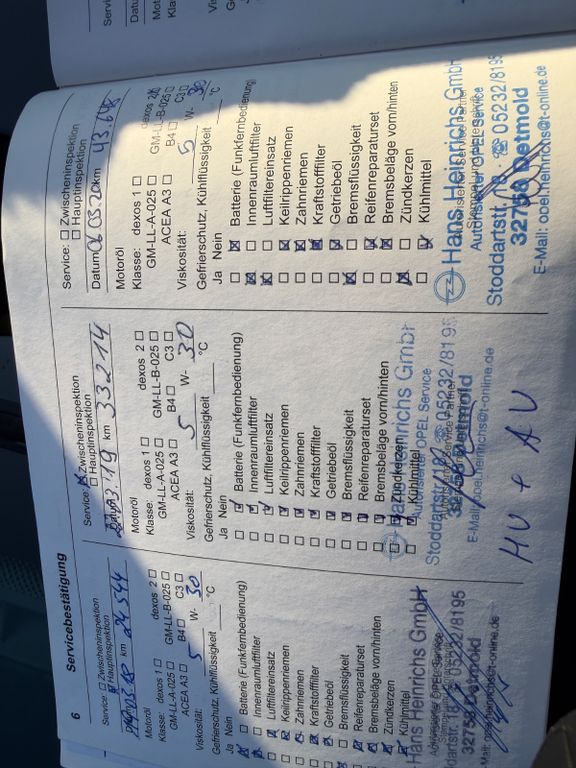 6 Servicebestätigung
Service: Zwischeninspektion
Hauptinspektion
km 24544
Motoröl
Klasse: dexos 1 dexos 2
GM-LL-A-025 GM-LL-B-025
ACEA A3 B4 C3
Viskosität: 5 W- 30
Gefrierschutz, Kühlflüssigkeit °C
Ja Nein
Batterie (Funkfernbedienung)
Innenraumluftfilter
Luftfiltereinsatz
Keilrippenriemen
Zahnriemen
Kraftstofffilter
Getriebeöl
Bremsflüssigkeit
Reifenreparaturset
Bremsbeläge vorn/hinten
Zündkerzen
Kühlmittel
Hans Heinrichs GmbH
Autorisierter OPEL Service
32758 Detmold
E-Mail: opel.heinrichs@t-online.de
Service: Zwischeninspektion
Hauptinspektion
19 km 33214
Motoröl
Klasse: dexos 1 dexos 2
GM-LL-A-025 GM-LL-B-025
ACEA A3 B4 C3
Viskosität: 5 W- 30
Gefrierschutz, Kühlflüssigkeit °C
Ja Nein
Batterie (Funkfernbedienung)
Innenraumluftfilter
Luftfiltereinsatz
Keilrippenriemen
Zahnriemen
Kraftstofffilter
Getriebeöl
Bremsflüssigkeit
Reifenreparaturset
Bremsbeläge vorn/hinten
Zündkerzen
Kühlmittel
Hans Heinrichs GmbH
Autorisierter OPEL Service
Stoddartstr. 05232/8195
32758 Detmold
E-Mail: opel.heinrichs@t-online.de
HU + AU
Service: Zwischeninspektion
Hauptinspektion
Datum 03.20 km 43.648
Motoröl
Klasse: dexos 1 dexos 2
GM-LL-A-025 GM-LL-B-025
ACEA A3 B4 C3
Viskosität: 5 W- 30
Gefrierschutz, Kühlflüssigkeit °C
Ja Nein
Batterie (Funkfernbedienung)
Innenraumluftfilter
Luftfiltereinsatz
Keilrippenriemen
Zahnriemen
Kraftstofffilter
Getriebeöl
Bremsflüssigkeit
Reifenreparaturset
Bremsbeläge vorn/hinten
Zündkerzen
Kühlmittel
Hans Heinrichs GmbH
Autorisierter OPEL Service
Stoddartstr. 05232/8195
32758 Detmold
E-Mail: opel.heinrichs@t-online.de